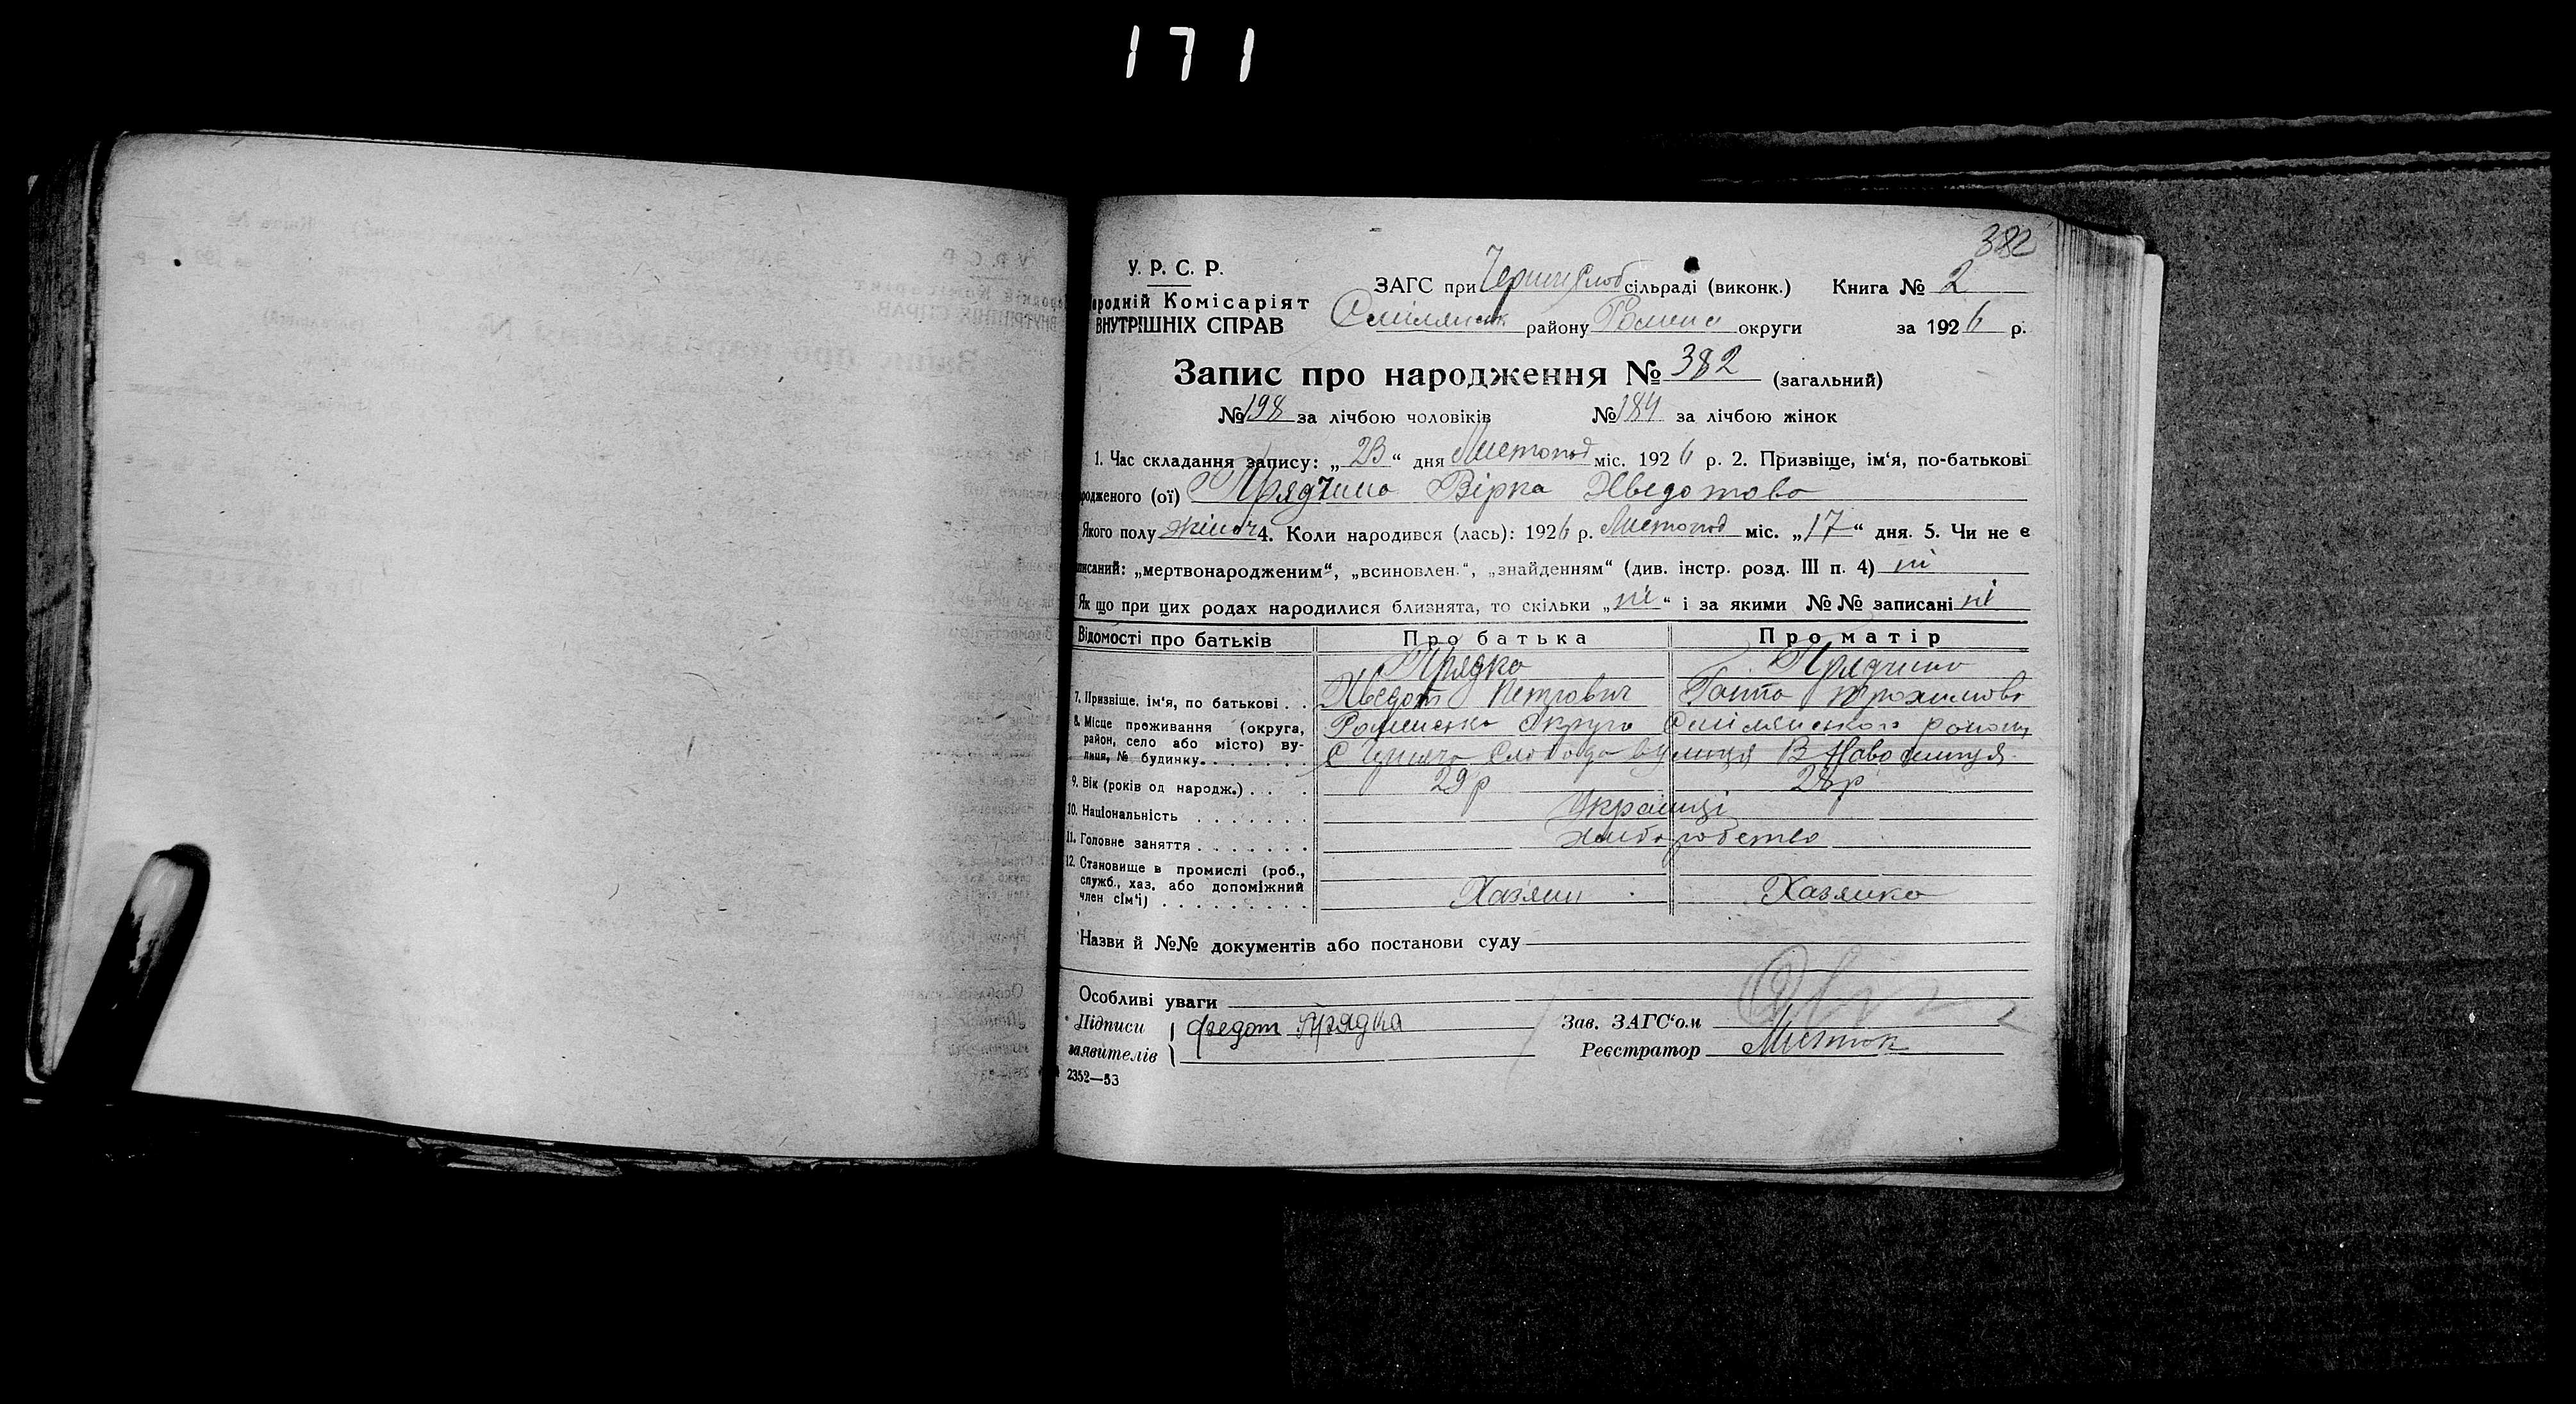 171
382
У. Р. С. Р.
ародній Комісаріят
ВНУТРІШНІХ СПРАВ
ЗАГС при сільраді (виконк.) Книга № 2
Смілянськ. району Роменс округи за 1926 р.
Запис про народження № 382 (загальний)
№ 198 за лічбою чоловіків № 184 за лічбою жінок
1. Час складання запису: „23“ дня Листопад міс. 1926 р. 2. Призвіще, ім‘я, по-батькові
родженого (ої) Прядчина Вірка Хведотова
Якого полу жіноч 4. Коли народився (лась): 1926 р. Листопад міс. „17“ дня. 5. Чи не є
писаний: „мертвонародженим“, „всиновлен.“, „знайденням“ (див. інстр. розд. III п. 4) ні
Як що при цих родах народилися близнята, то скільки „ні“ і за якими №№ записані ні
Відомості про батьків Про батька Про матір
Прядко Прядчина
7. Призвіще, ім‘я, по батькові . . Хведот Петрович Трохимовн
8. Місце проживання (округа, Роменська Округа Смілянського району
район, село або місто) ву-
лиця, № будинку. . . . . . . С Слобода вулиця
9. Вік (років од народж.) . . . 29 р 28 р
10. Національність . . . . . . . Українці
11. Головне заняття . . . . . . . хліборобство
12. Становище в промислі (роб.,
служб., хаз. або допоміжний
член сім‘ї) . . . . . . . . . Хазяин Хазяйка
Назви й №№ документів або постанови суду
Особливі уваги
Підписи Федот Прядка Зав. ЗАГС‘ом
заявителів Реєстратор
2352—53